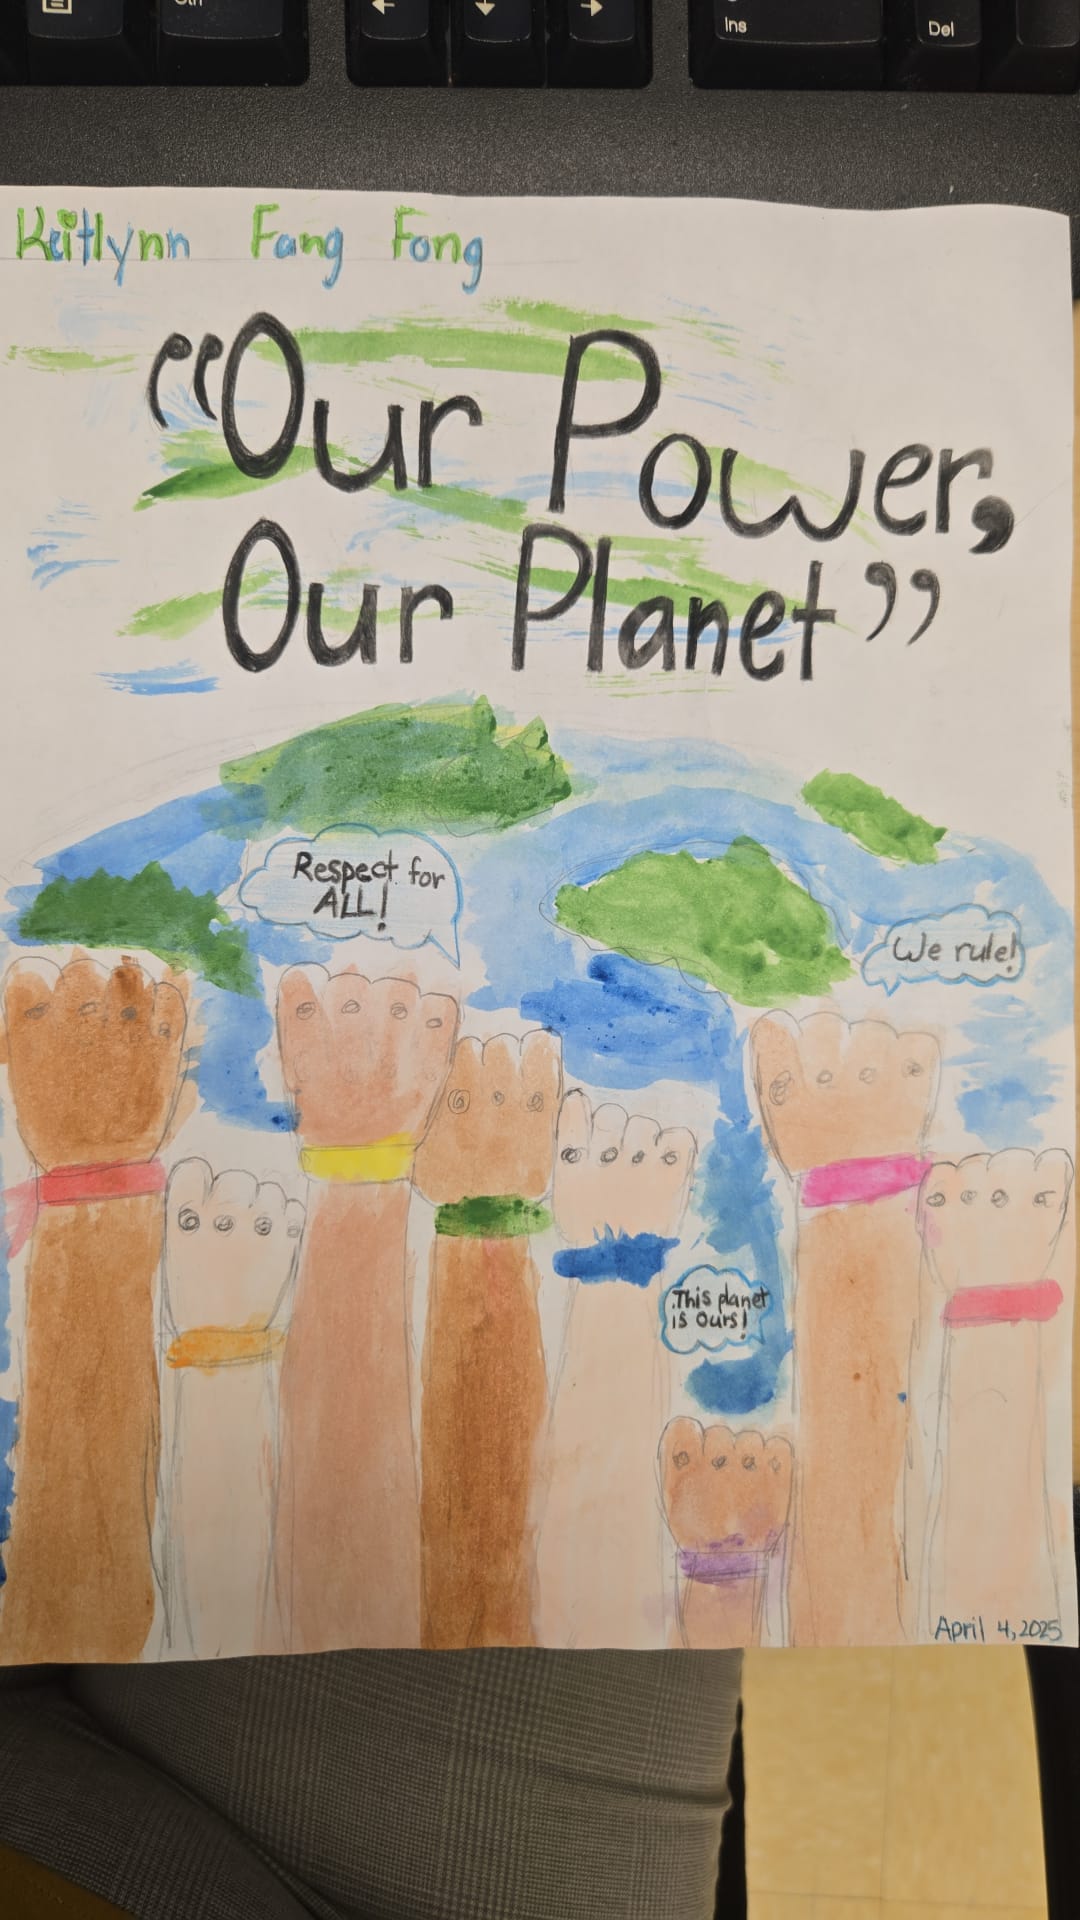 Ins
Del
Keitlynn Fang Fong
“Our Power,
Our Planet”
Respect for
ALL!
We rule!
This planet
is ours!
April 4, 2025